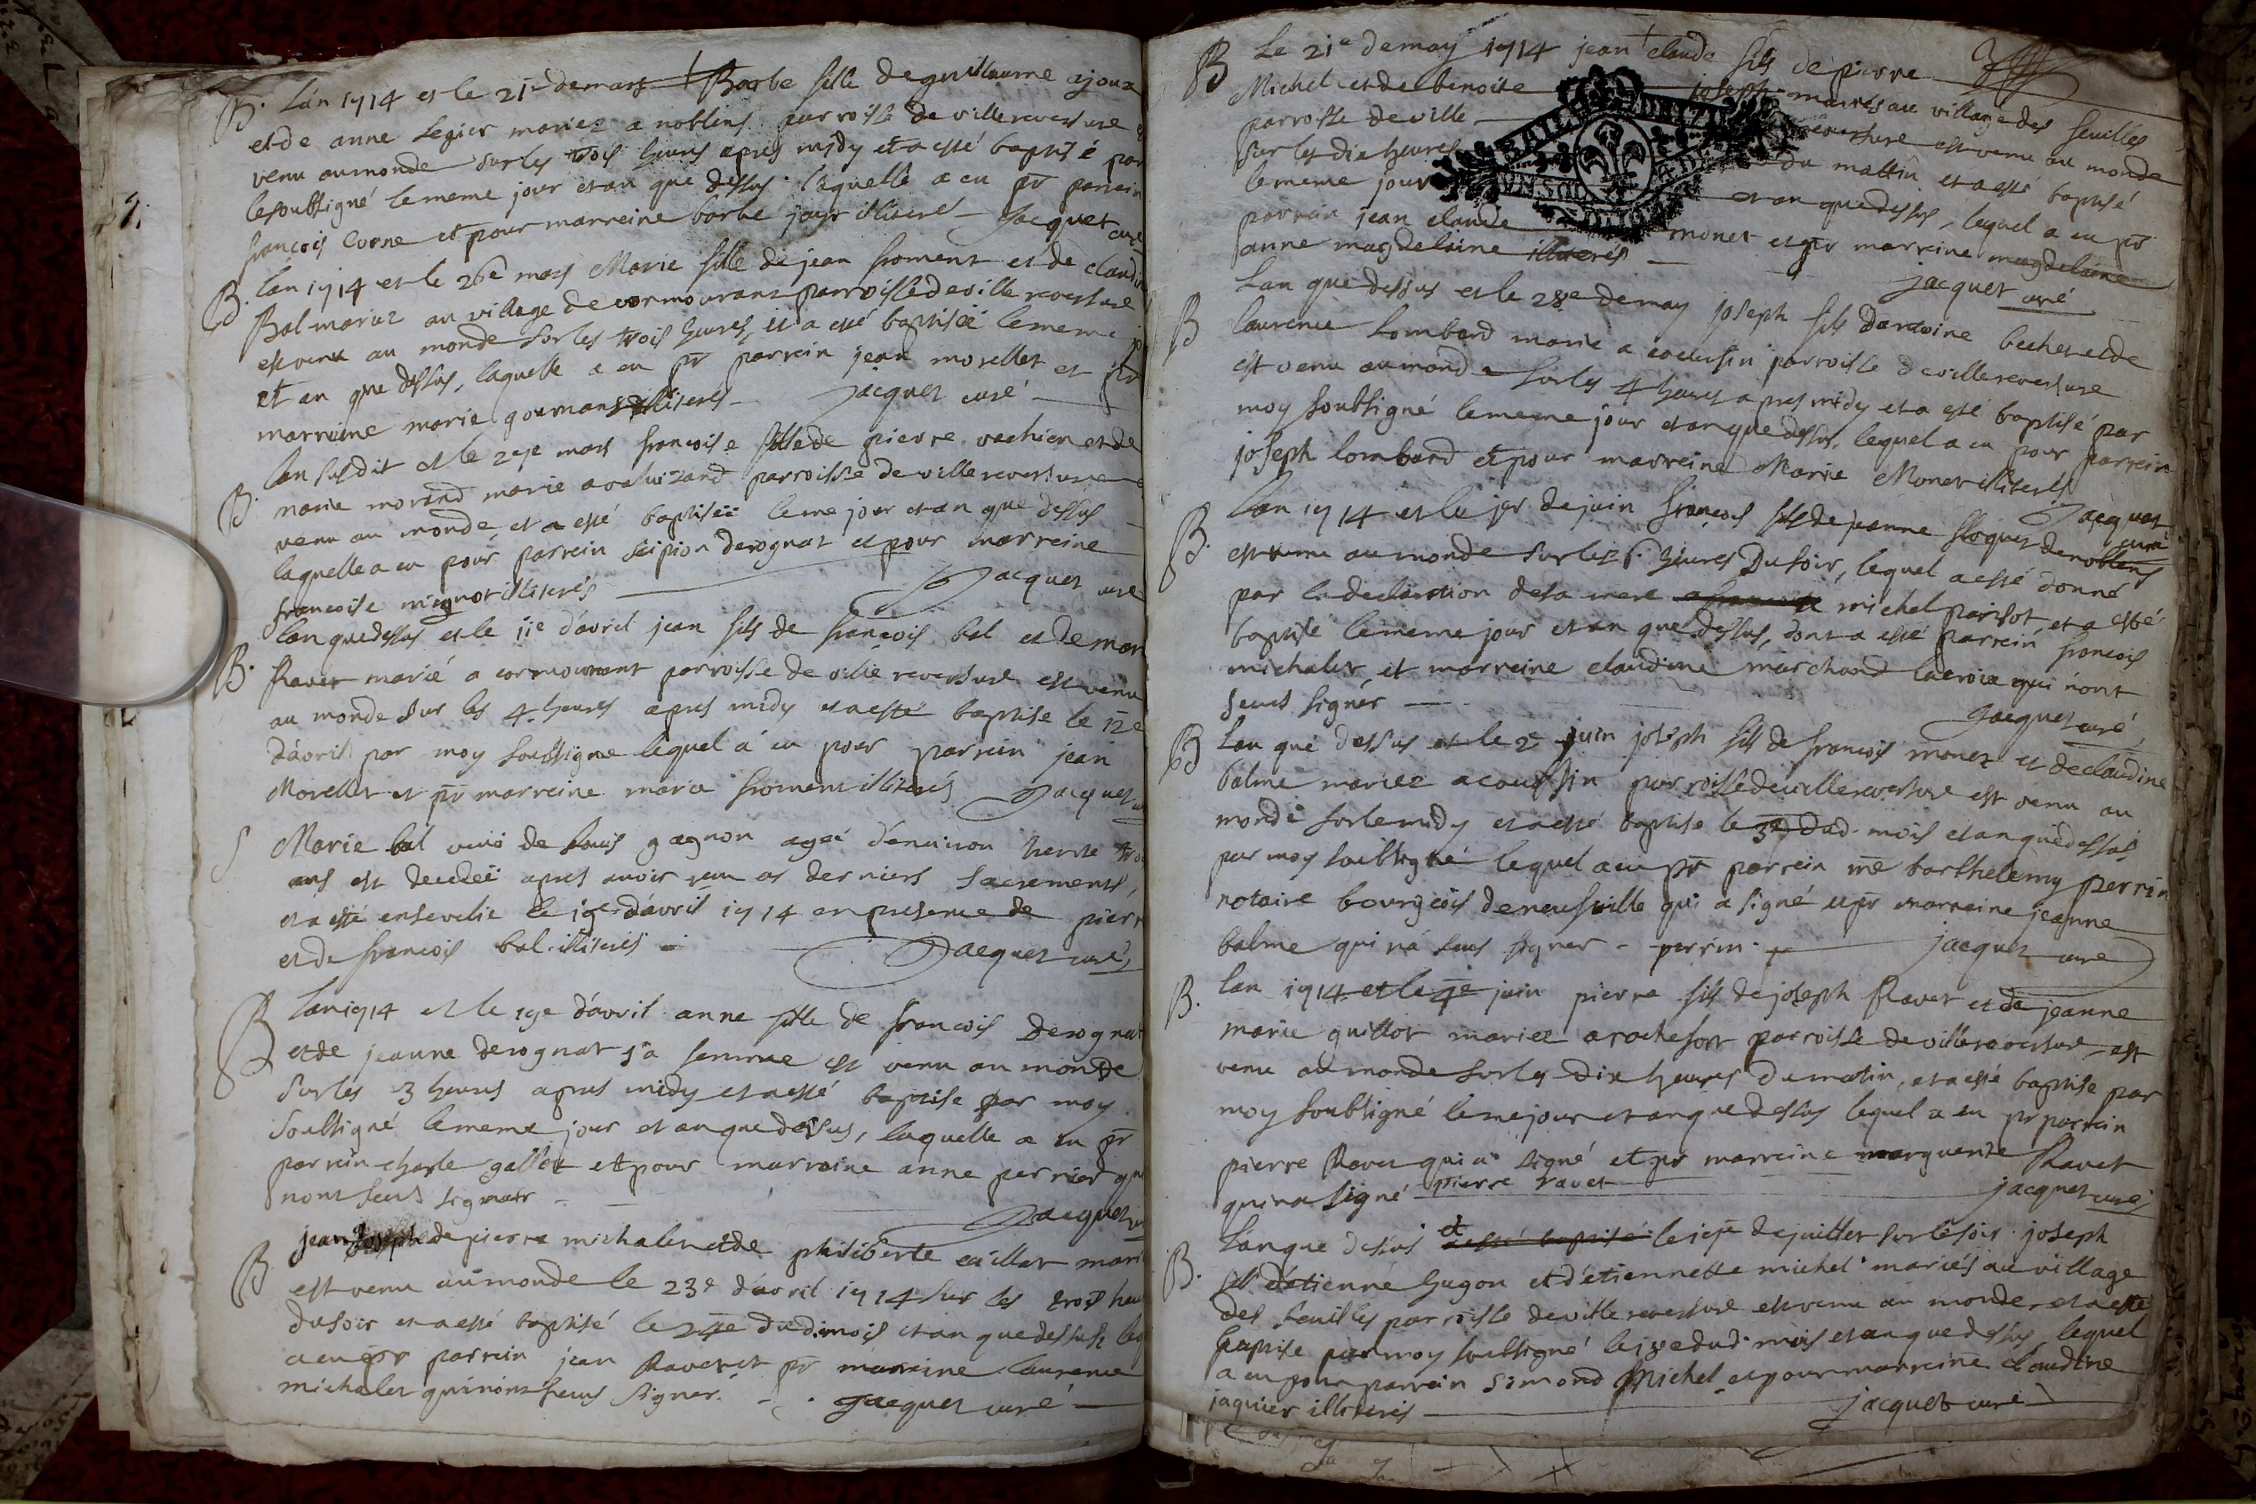 B. L'an 1714 et le 21e de mars Barbe fille de guillaume ajoux
et de anne Legier mariez a noblens parroisse de villereversure
venu au monde sur les trois heures apres midy et a esté baptisé par
le soubsigné le meme jour et an que dessus laquelle a eu pr parrein
françois Corne et pour marreine barbe illiterés Jacquet curé
B. L'an 1714 et le 26e mars Marie fille de jean froment et de claudine
Bal mariez au village de cormourant parroisse de villereversure
est venu au monde sur les trois heures, et a esté baptiseé le meme
et an que dessus, laquelle a eu pr parrein jean morellet et pr
marreine marie gourmand illiterés jacquet curé
B. L'an susdit et le mars francoise fille de pierre vachier et de
marie morand marie a parroisse de villereversure
venu au monde, et a esté baptiseé le me jour et an que dessus
laquelle a eu pour parrein scipion derognat et pour marreine
francoise mignot illiterés Jacquet curé
B. L'an que dessus et le 11e d'avril jean fils de francois bal et de
Ravet marié a cormourant parroisse de villereversure est venu
au monde sur les 4. heures apres midy et a esté baptise le 12e
d'avril par moy soussigne lequel a eu pour parrein jean
Morellet et pr marreine marie froment illiterés Jacquet
S Marie bal de gagnon ageé d'environ
ans est decedeé apres avoir receu derniers sacrements,
et a esté ensevelie le d'avril 1714 en presence de
et de francois bal illiterés Jacquet curé
B L'an 1714 et le 19e d'avril anne fille de francois Derognat
et de jeanne derognat sa femme est venu au monde
sur les 3 heures apres midy et a esté baptise par moy
soubsigné le meme jour et an que dessus, laquelle a eu pr
parrein charle gallet et pour marreine anne perrier qui
nont sceus signer Jacquet
B jean joseph de pierre michalet et de philiberte cuillat
est venu au monde le 23e d'avril 1714 sur les trois
du soir et a esté baptisé le 24e dud. mois et an que dessus
a eu pr parrein jean Ravet et pr marreine laurence
michalet qui n'ont sceus signer. jacquet curé
B Le 21e de may 1714 jean claude fils de pierre
Michel et de benoite joseph mariés au village des feuilles
parroisse de villereversure est venu au monde
sur les dix heures du mattin et a esté baptisé
le meme jour et an que dessus, lequel a eu pr
parrein jean claude monet et pr marreine magdelaine
anne magdelaine illiterés jacquet curé
B L'an que dessus et le 28e de may joseph fils dantoine bechet et de
laurence Lombard marie a coeursin parroisse de villereversure
est venu au monde sur les 4 heures apres midy et a esté baptisé par
moy soubsigné le meme jour et an que dessus, lequel a eu pour parrein
joseph lombard et pour marreine Marie Monet illiterés Jacquet curé
B. L'an 1714 et le 1er de juin françois fils de jeanne floquet de noblens
est venu au monde sur les 6. heures Du soir, lequel a esté donné
par la declaration de sa mere michel parisot et a esté
baptisé le meme jour et an que dessus, dont a esté parrein francois
michalet, et marreine claudine marchand lacroix qui n'ont
sceus signer jacquet curé
B L'an que dessus et le 2e juin joseph fils de francois monet et de claudine
balme mariez a coeursin parroisse de villereversure est venu au
monde sur le midy et a esté baptise le 3e dud. mois et an que dessus
par moy soubsigné lequel a eu pr parrein me barthelemy perrin
notaire bourgeois de neufville qui a signé et pr marreine jeanne
balme qui n'a sceus signer perrin jacquet curé
B. L'an 1714 et le 4e juin pierre fils de joseph Ravet et de jeanne
marie guillot mariez a rochefort parroisse de villereversure est
venu au monde sur les dix heures du matin, et a esté baptise par
moy soubsigné le me jour et an que dessus lequel a eu pr parrein
pierre Ravet qui a signé et pr marreine marguerite Ravet
qui n'a signé pierre ravet jacquet curé
B. L'an que dessus et a esté baptisé le de juillet sur le soir joseph
fils d'etienne hugon et d'etiennette michel mariés au village
des feuilles parroisse de villereversure est venu au monde, et a esté
baptise par moy soubsigné le dud. mois et an que dessus, lequel
a eu pour parrein simond Michel et pour marreine claudine
jaquier illiterés jacquet curé